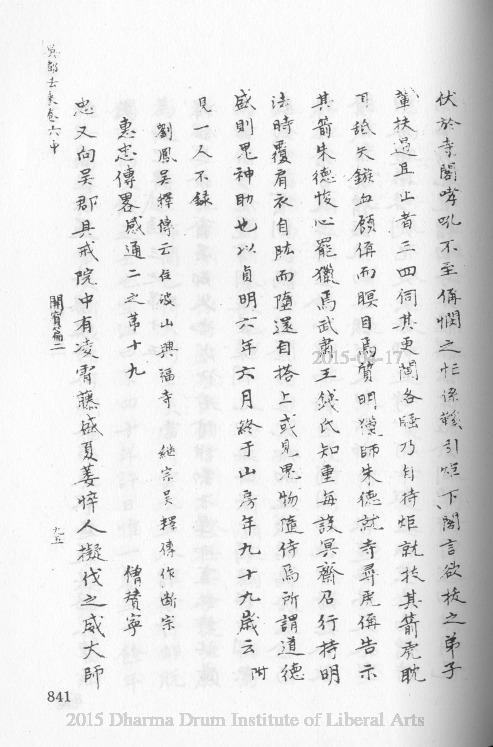 伏於寺閣哮吼不至偁憫之忙係韈引炬下閣言欲拔之弟子
輩扶遏且止者三四伺其更闌各睡乃自持炬就拔其箭虎耽
耳舐矢鏃血顧偁而瞑目焉質明獵師朱德就寺尋虎偁告示
其箭朱德悛心罷獵焉武肅王錢氏知重每設冥齋召行持明
法時覆肩衣自肱而墮還自搭上或見鬼物隨侍焉所謂道德
盛則鬼神助也以貞明六年六月終于山房年九十九歲云附
見一人不錄
劉鳳吳釋傳云住波山興福寺 繼宗吳釋傳作斷宗
惠忠傳畧感通二之第十九 僧贊寧
忠又向吳郡具戒院中有凌霄藤盛夏萎悴人擬伐之威大師
吳都法乘卷六中
開實篇二
九五
841
2015-06-17
2015 Dharma Drum Institute of Liberal Arts